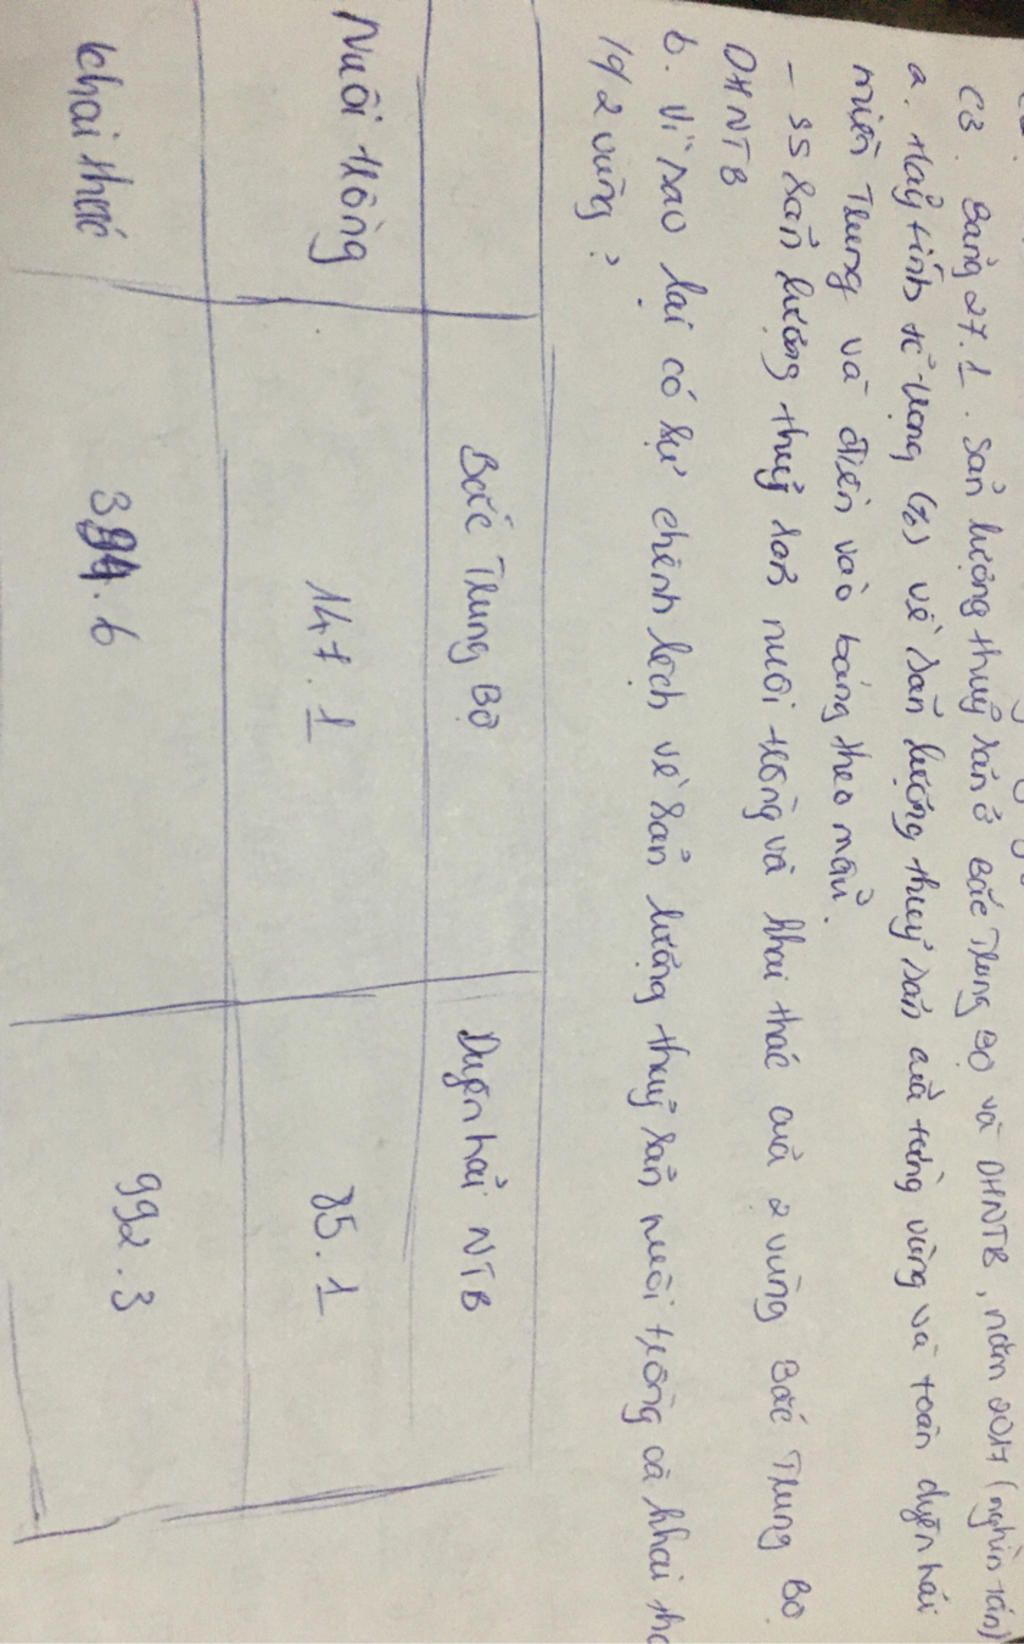 C3. Bảng 27.1. Sản lượng thuỷ sản ở Bắc Trung Bộ và DHNTB, năm 2017 (nghìn tấn)
a. Hãy tính tỉ trọng (%) về sản lượng thuỷ sản của từng vùng và toàn duyên hải
miền Trung và điền vào bảng theo mẫu.
- SS sản lượng thuỷ sản nuôi trồng và khai thác của 2 vùng Bắc Trung Bộ
DHNTB
b. Vì sao lại có sự chênh lệch về sản lượng thuỷ sản nuôi trồng và khai
19/2 vùng?
Bắc Trung Bộ Duyên hải NTB
Nuôi trồng 147.1 85.1
Khai thác 394.6 992.3